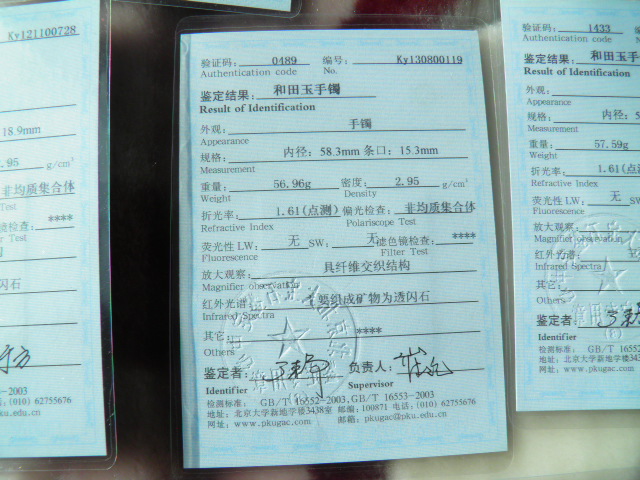 Ky121100728
18.9mm
2.95 g/cm³
非均质集合体
Test
****
Filter Test
2003
(010) 62755676
pku.edu.cn
验证码： 0489 编号： Ky130800119
Authentication code No.
鉴定结果： 和田玉手镯
Result of Identification
外观： 手镯
Appearance
规格： 内径：58.3mm 条口：15.3mm
Measurement
重量： 56.96g 密度： 2.95 g/cm³
Weight Density
折光率： 1.61(点测) 偏光检查： 非均质集合体
Refractive Index Polariscope Test
荧光性 LW: 无 SW: 无 滤色镜检查： ****
Fluorescence Filter Test
放大观察： 具纤维交织结构
Magnifier observation
红外光谱： 主要组成矿物为透闪石
Infrared Spectra
其它： ****
Others
鉴定者： 负责人：
Identifier Supervisor
检测标准： GB/T 16552-2003, GB/T 16553-2003
地址：北京大学新地学楼3438室 邮编：100871 电话：(010) 62755676
网址：www.pkugac.com 邮箱：pkugac@pku.edu.cn
验证码： 1433
Authentication code No.
鉴定结果： 和田玉
Result of Identification
外观：
Appearance
规格： 内径：
Measurement
重量： 57.59g
Weight
折光率： 1.61(点
Refractive Index
荧光性 LW: 无
Fluorescence
放大观察：
Magnifier observation
红外光谱：
Infrared Spectra
其它：
Others
鉴定者：
Identifier
检测标准： GB/T 16552
地址：北京大学新地学楼34
网址：www.pkugac.com